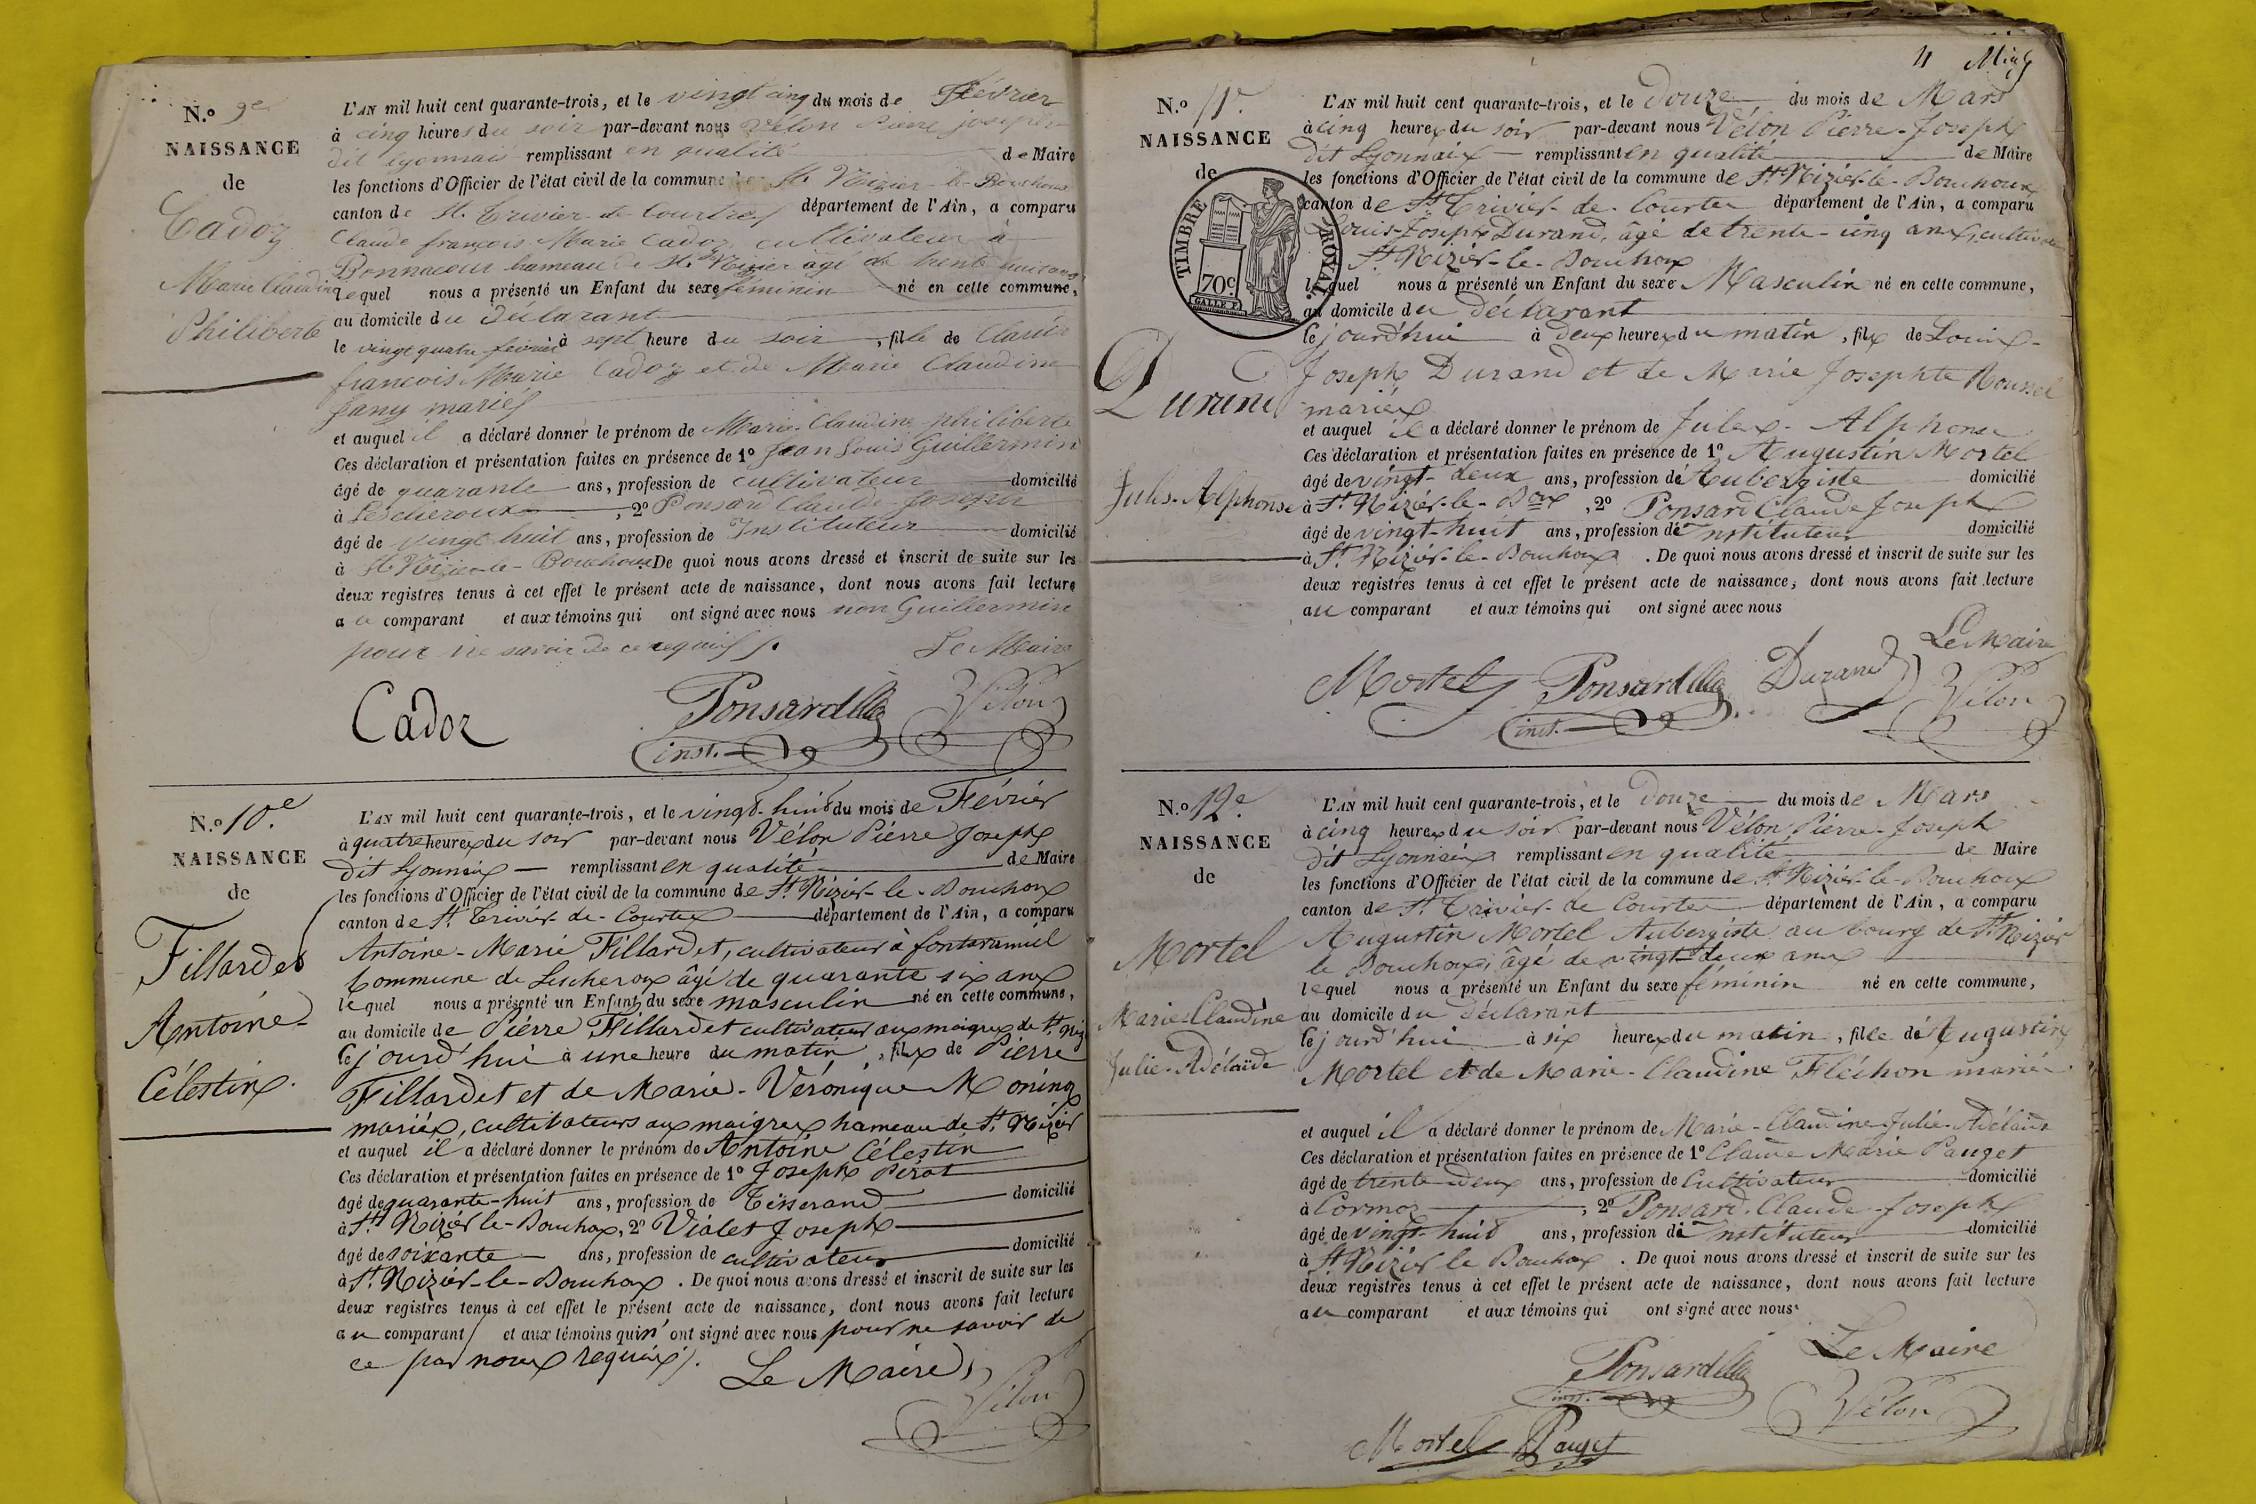 N.o 9e
NAISSANCE
de
Cadoz
Marie Claudine
Philiberte
L'AN mil huit cent quarante-trois, et le vingt cinq du mois de Février
à cinq heures du soir par-devant nous Vélon Pierre joseph
dit lyonnais remplissant en qualité de Maire
les fonctions d'Officier de l'état civil de la commune de St. Nizier-le-Bouchoux
canton de St. Trivier-de Courtes département de l'Ain, a comparu
Claude françois Marie Cadoz, cultivateur à
Bonnacour hameau de St. Nizier agé de trente huit ans
lequel nous a présenté un Enfant du sexe féminin né en cette commune,
au domicile du Déclarant
le vingt quatre février à sept heure du soir, fille de Claude
françois Marie Cadoz et de Marie Claudine
Jany mariés
et auquel il a déclaré donner le prénom de Marie Claudine philiberte
Ces déclaration et présentation faites en présence de 1o Jean Louis Guillermin
âgé de quarante ans, profession de cultivateur domicilié
à Lescheroux, 2o Ponsard Claude Joseph
âgé de vingt huit ans, profession de Instituteur domicilié
à St Nizier-le-Bouchoux De quoi nous avons dressé et inscrit de suite sur les
deux registres tenus à cet effet le présent acte de naissance, dont nous avons fait lecture
au comparant et aux témoins qui ont signé avec nous non Guillermin
pour ne savoir de ce requis /.
Le Maire
Cadoz
Ponsard
inst.
Vélon
N.o 10e.
NAISSANCE
de
Fillardet
Antoine-
Célestin.
L'AN mil huit cent quarante-trois, et le vingt-huit du mois de Février
à quatre heures du soir par-devant nous Vélon Pierre Joseph
dit Lyonnais — remplissant en qualité de Maire
les fonctions d'Officier de l'état civil de la commune de St. Nizier-le-Bouchoux
canton de St. Trivier-de-Courtes département de l'Ain, a comparu
Antoine-Marie Fillardet, cultivateur à fontaramiel
Commune de Lescheroux âgé de quarante six ans
lequel nous a présenté un Enfant du sexe masculin né en cette commune,
au domicile de Pierre Fillardet cultivateur aux maigres de St. Niz
le jourd'hui à une heure du matin, fils de Pierre
Fillardet et de Marie-Véronique Moninoz
mariés, cultivateurs aux maigres hameau de St. Nizier
et auquel il a déclaré donner le prénom de Antoine Célestin
Ces déclaration et présentation faites en présence de 1o Joseph Perat
âgé de quarante-huit ans, profession de Tisserand domicilié
à St. Nizier le-Bouchoux, 2o Violet Joseph
âgé de soixante ans, profession de cultivateur domicilié
à St. Nizier-le-Bouchoux. De quoi nous avons dressé et inscrit de suite sur les
deux registres tenus à cet effet le présent acte de naissance, dont nous avons fait lecture
au comparant et aux témoins qui n'ont signé avec nous pour ne savoir de
ce par nous requis /.
Le Maire
Vélon
4
N.o 11e.
NAISSANCE
de
TIMBRE ROYAL.
70c
Durand
Jules-Alphonse
L'AN mil huit cent quarante-trois, et le Douze du mois de Mars
à cinq heures du soir par-devant nous Vélon Pierre-Joseph
dit Lyonnais — remplissant en qualité de Maire
les fonctions d'Officier de l'état civil de la commune de St. Nizier-le-Bouchoux
canton de St. Trivier-de-Courtes département de l'Ain, a comparu
Louis-Joseph Durand, âgé de trente-cinq ans, cultivateur
St. Nizier-le-Bouchoux
lequel nous a présenté un Enfant du sexe Masculin né en cette commune,
au domicile du Déclarant
le jourd'hui à Deux heures du matin, fils de Louis-
Joseph Durand et de Marie Josephte Roussel
mariés
et auquel il a déclaré donner le prénom de Jules-Alphonse
Ces déclaration et présentation faites en présence de 1o Augustin Mortel
âgé de vingt-deux ans, profession de Aubergiste domicilié
à St. Nizier-le-Boux, 2o Ponsard Claude Joseph
âgé de vingt-huit ans, profession de Instituteur domicilié
à St. Nizier-le-Bouchoux. De quoi nous avons dressé et inscrit de suite sur les
deux registres tenus à cet effet le présent acte de naissance, dont nous avons fait lecture
au comparant et aux témoins qui ont signé avec nous
Le Maire
Mortel
Ponsard
inst.
Durand
Vélon
N.o 12e.
NAISSANCE
de
Mortel
Marie Claudine
Julie-Adélaïde
L'AN mil huit cent quarante-trois, et le Douze du mois de Mars
à cinq heures du soir par-devant nous Vélon Pierre-Joseph
dit Lyonnais remplissant en qualité de Maire
les fonctions d'Officier de l'état civil de la commune de St. Nizier-le-Bouchoux
canton de St. Trivier-de Courtes département de l'Ain, a comparu
Augustin Mortel Aubergiste au bourg de St. Nizier
le Bouchoux, âgé de vingt-deux ans
lequel nous a présenté un Enfant du sexe féminin né en cette commune,
au domicile du Déclarant
le jourd'hui à six heures du matin, fille de Augustin
Mortel et de Marie-Claudine Fléchon mariés
et auquel il a déclaré donner le prénom de Marie-Claudine Julie-Adélaïde
Ces déclaration et présentation faites en présence de 1o Claude Marie Pauget
âgé de trente deux ans, profession de Cultivateur domicilié
à Cormoz, 2o Ponsard Claude-Joseph
âgé de vingt-huit ans, profession de Instituteur domicilié
à St. Nizier le Bouchoux. De quoi nous avons dressé et inscrit de suite sur les
deux registres tenus à cet effet le présent acte de naissance, dont nous avons fait lecture
au comparant et aux témoins qui ont signé avec nous.
Le Maire
Ponsard
inst.
Vélon
Mortel
Pauget